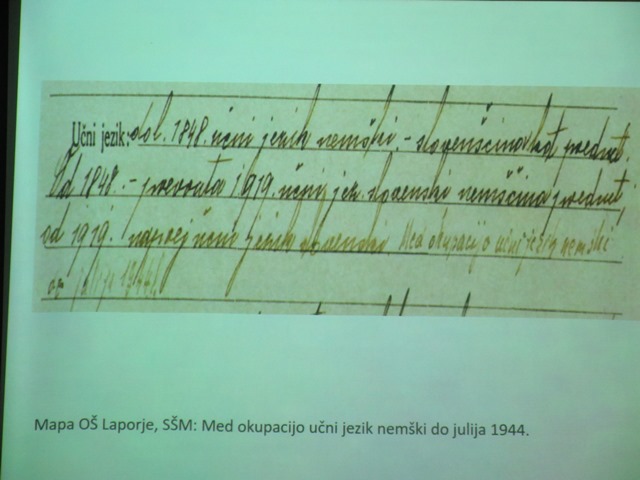 Učni jezik: do l. 1848. učni jezik nemški. - slovenščina kot predmet.
Od 1848. - prevrata 1919. učni jez. slovenski nemščina predmet,
od 1919. naprej učni jezik slovenski Med okupacijo učni jezik nemški
do julija 1944.
Mapa OŠ Laporje, SŠM: Med okupacijo učni jezik nemški do julija 1944.